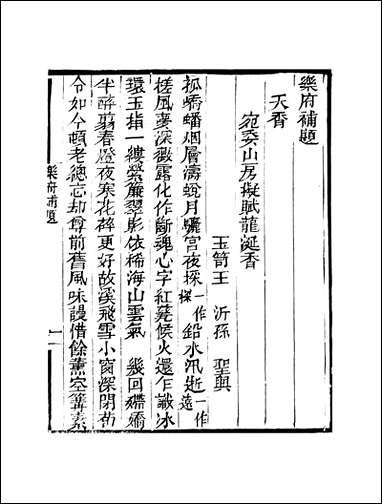 樂府補題
天香
宛委山房擬賦龍涎香
玉笥王 沂孫 聖與
孤嶠蟠烟層濤蛻月驪宮夜採一作探 鉛水汛逝一作遠
槎風夢深薇露化作斷魂心字紅甆候火還乍識冰
環玉指一縷縈簾翠影依稀海山雲氣 幾回殢嬌
半醉翦春燈夜寒花碎更好故溪飛雪小窗深閉荀
令如今頓老總忘却尊前舊風味謾惜餘薰空篝素
樂府補題 一